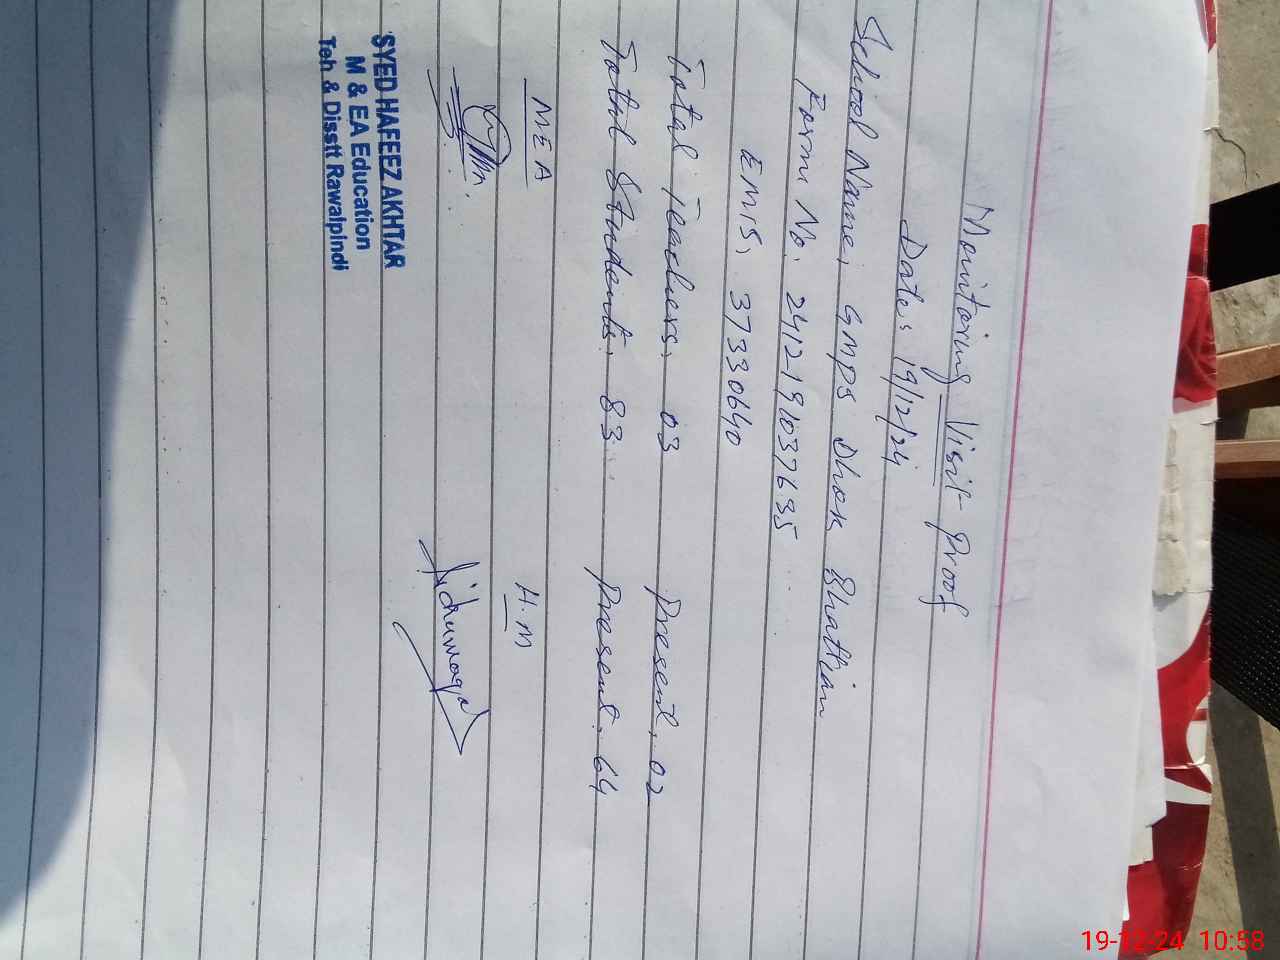 Monitoring Visit Proof
Date: 19/12/24
School Name: GMPS Dhok Bhattian
Form No. 241219/037635
EMIS: 37330640
Total Teachers: 03 Present: 02
Total Students: 83 Present: 64
MEA H.M
SYED HAFEEZ AKHTAR
M & EA Education
Teh & Disstt Rawalpindi
19-12-24 10:58